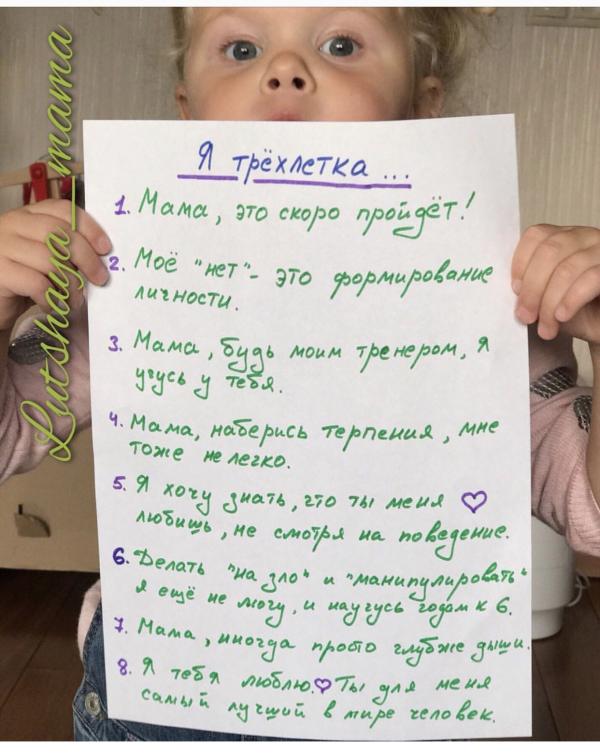 Я трёхлетка...
1. Мама, это скоро пройдёт!
2. Моё "нет"- это формирование
личности.
3. Мама, будь моим тренером, я
учусь у тебя.
4. Мама, наберись терпения, мне
тоже не легко.
5. Я хочу знать, что ты меня ♡
любишь, не смотря на поведение.
6. Делать "на зло" и "манипулировать"
я ещё не могу, и научусь годам к 6.
7. Мама, иногда просто глубже дыши.
8. Я тебя люблю.♡ Ты для меня
самый лучший в мире человек.
Lutshaya_mama